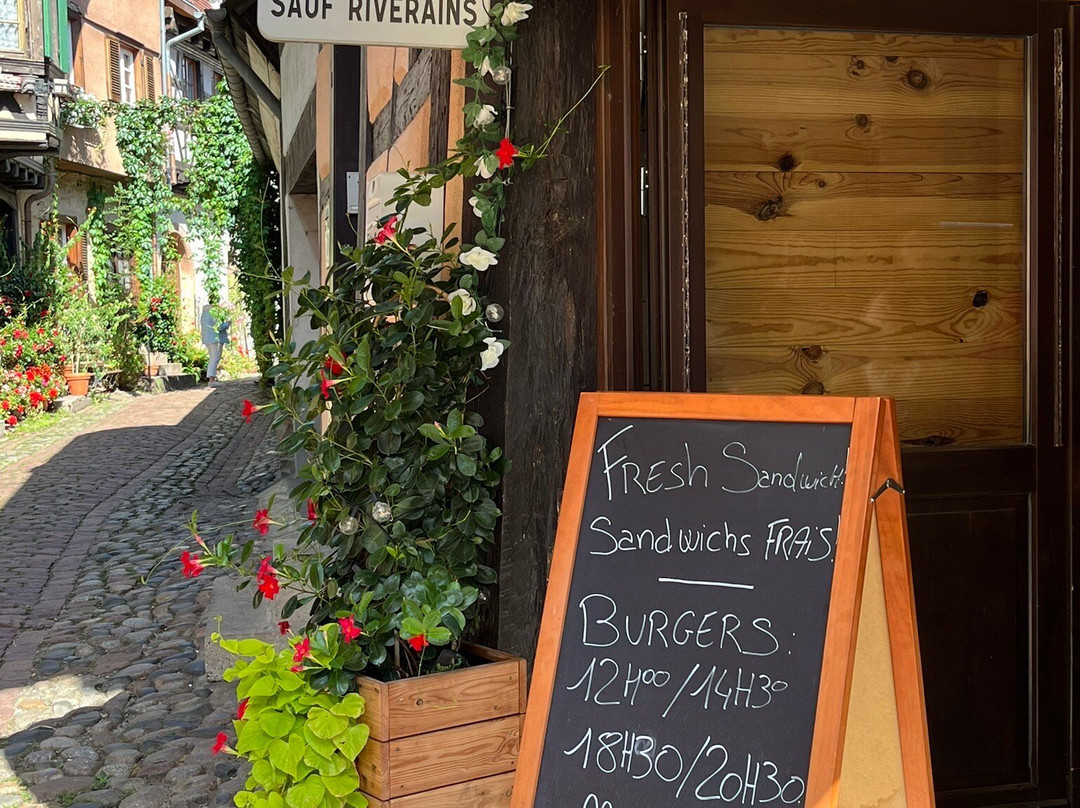 SAUF RIVERAINS
FRESH Sandwich!
Sandwichs FRAiS!
BURGERS:
12H00/14H30
18H30/20H30